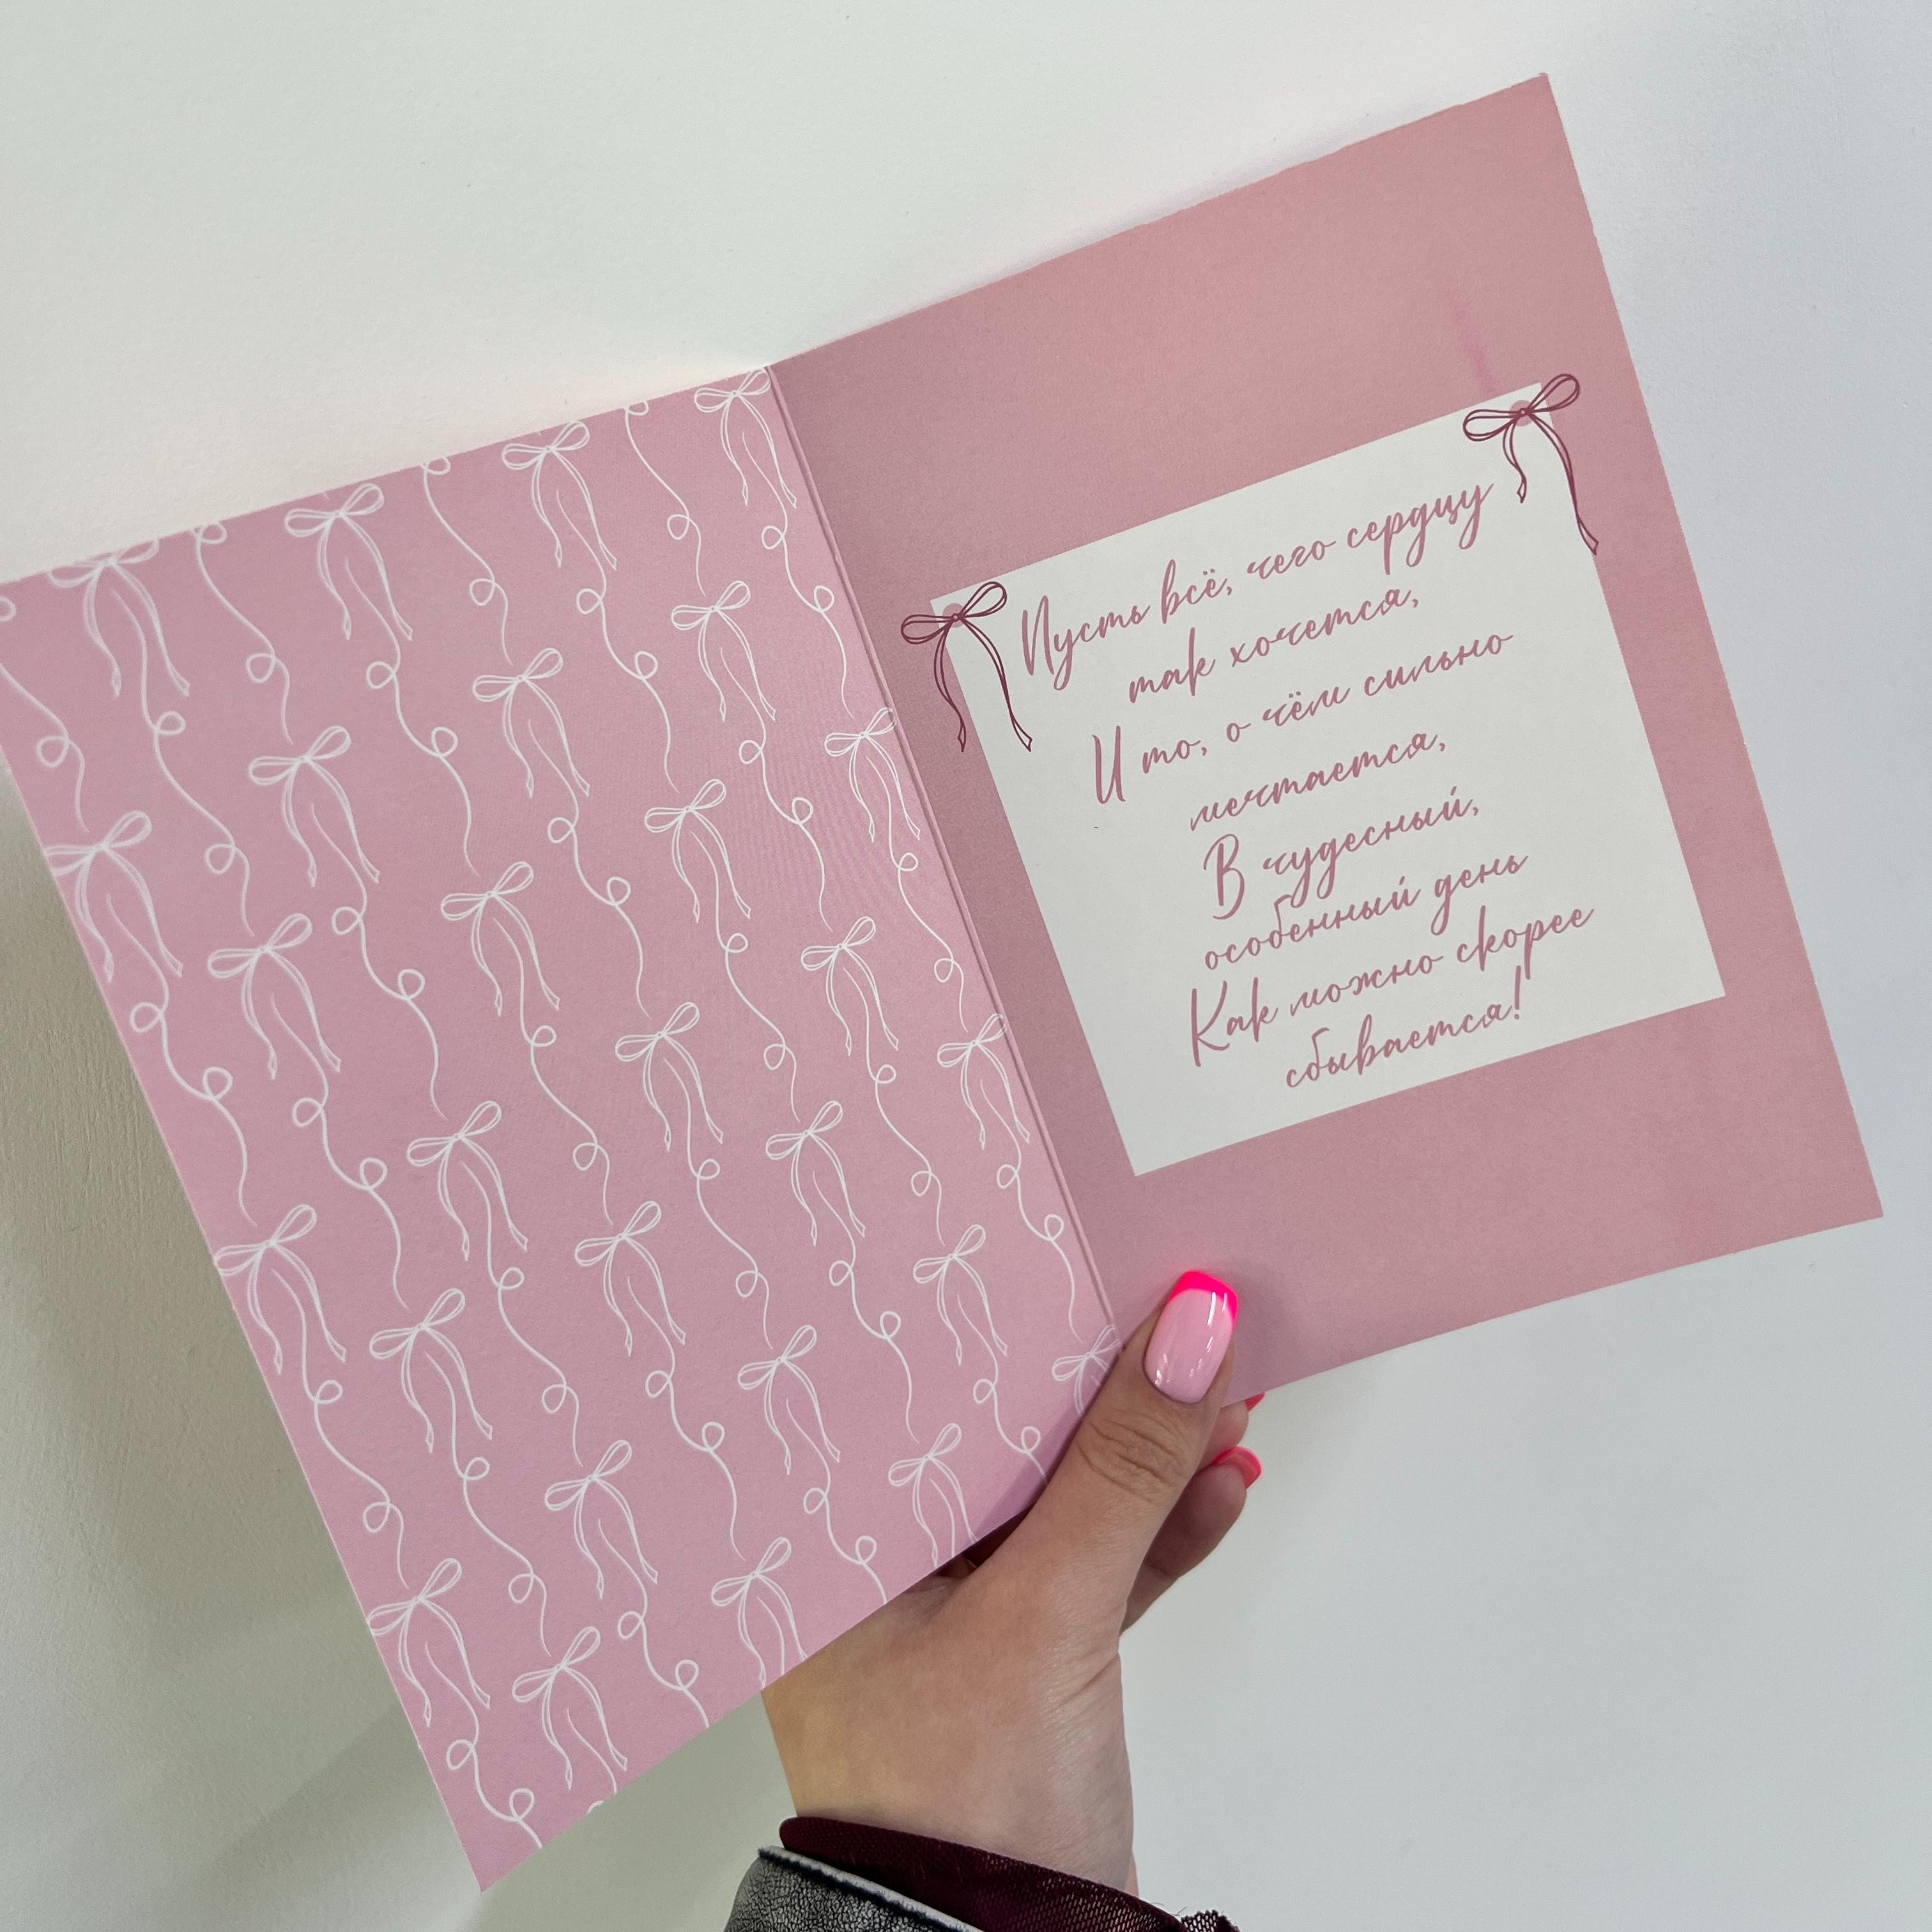 Пусть всё, чего сердцу
так хочется,
И то, о чём сильно
мечтается,
В чудесный,
особенный день
Как можно скорее
сбывается!